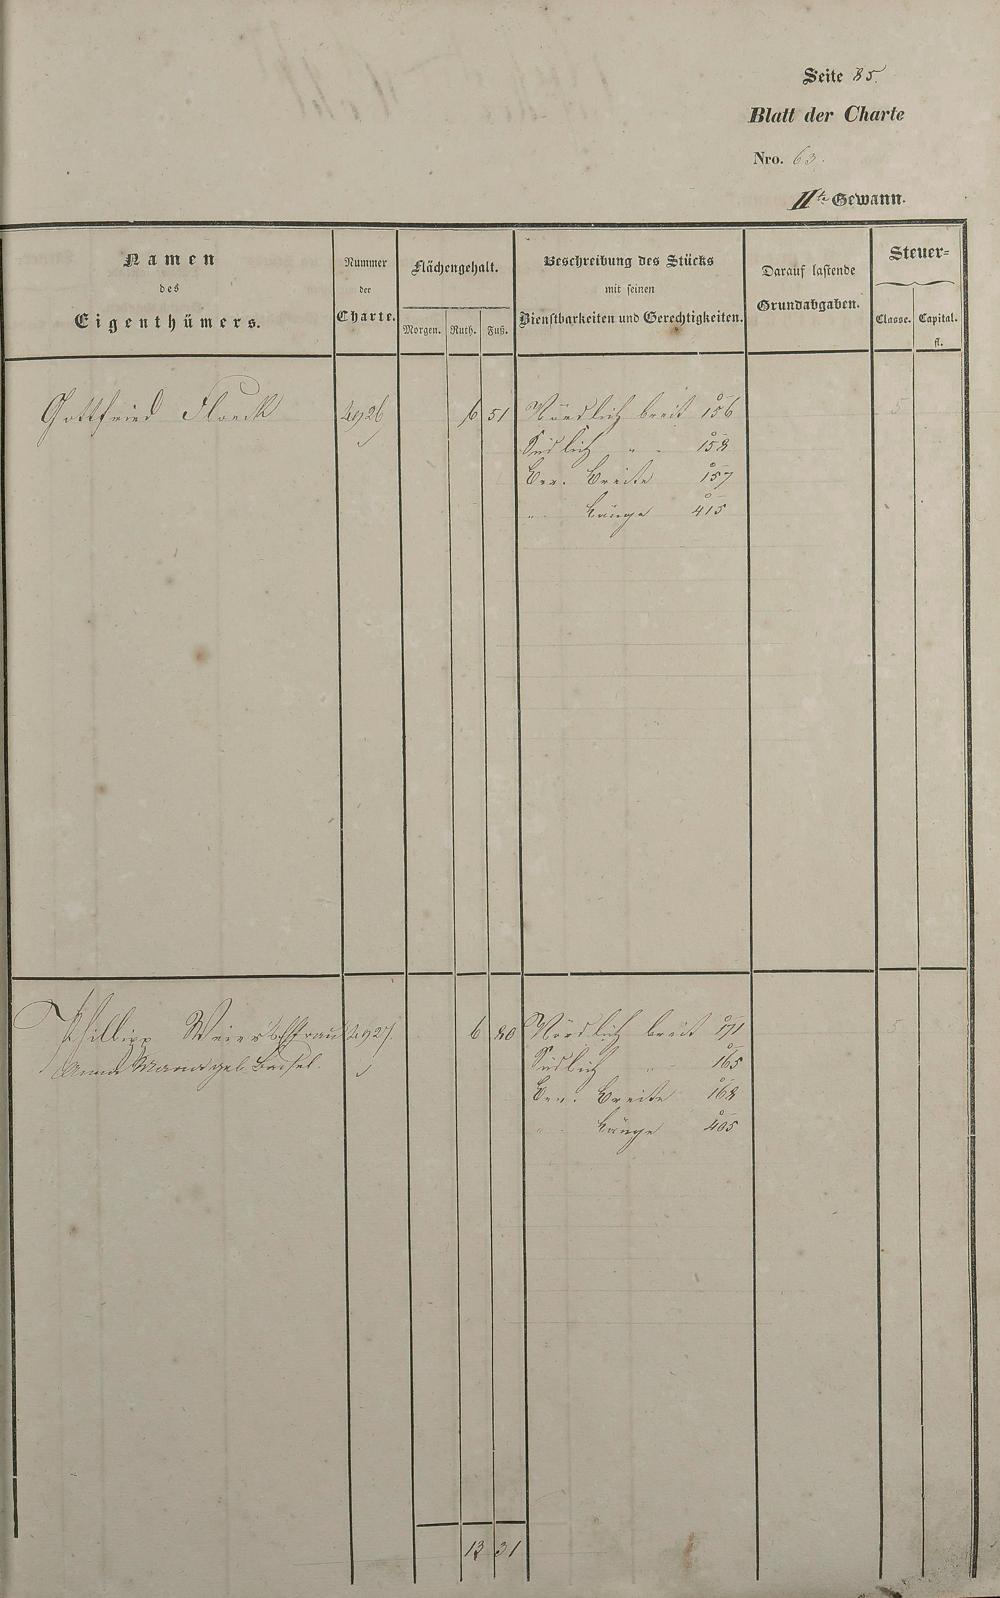 Seite 85.
Blatt der Charte
Nro. 63.
IIte Gewann.
Namen
des
Eigenthümers.
Nummer
der
Charte.
Flächengehalt.
Morgen. Ruth. Fuß.
Beschreibung des Stücks
mit seinen
Dienstbarkeiten und Gerechtigkeiten.
Darauf lastende
Grundabgaben.
Steuer-
Classe. Capital.
fl.
Gottfried Floeck 2926 6 51 Nördlich breit 156 5
Südlich " " 158
Ber. Breite 157
" Länge 415
Phillipp 2927. 6 80 Nördlich breit 171 5
Anna Maria geb. Südlich " 165
Ber. Breite 168
" Länge 405
13 31